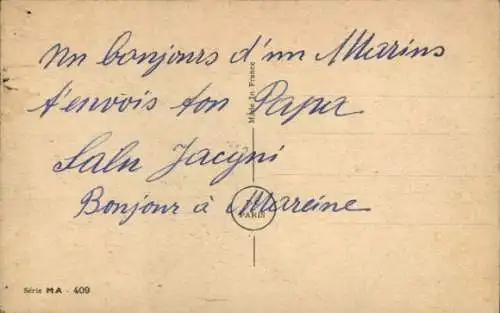 un bonjours d'un Marins
t'envois ton Papa
Salu Jacyni
Bonjour à Mareine
Made In France
PARIS
Série MA - 409